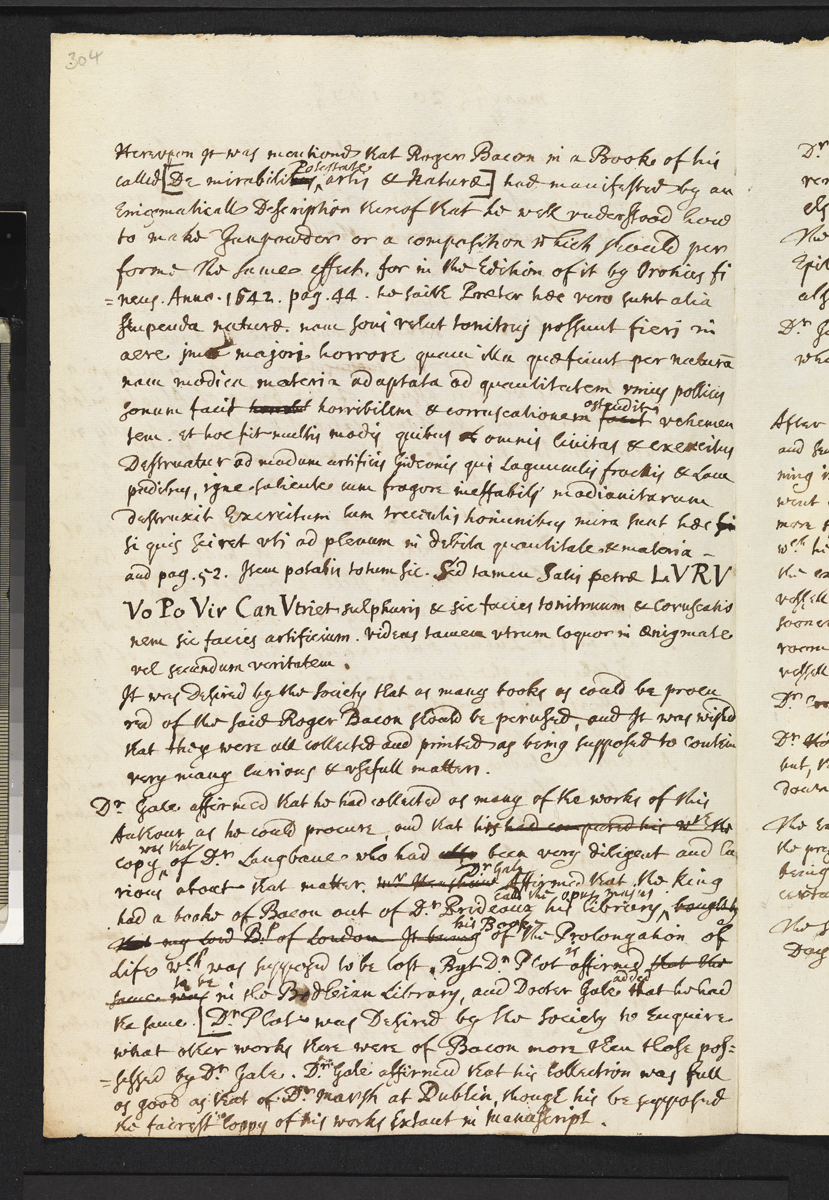 304
Hereupon it was mentiond that Roger Bacon in a Booke of his
called [De mirabili Potestate artis & Naturæ] had manifested by an
Enigmaticall Description thereof that he well understood how
to make Gunpowder or a composition which should per
forme the same effect, for in the Edition of it by Orontius fi
=neus. Anno. 1542. pag. 44. he saith Præter hæc vero sunt alia
stupenda naturæ. nam soni velut tonitruj possunt fierj in
aere majorj horrore quam illa quæ fiunt per naturā
nam modica materia adaptata ad quantitatem unius pollicis
sonum facit horribilem & corruscationem ostendit vehemen
tem. et hoc fit multis modis quibus omnis civitas & exercitus
Destruatur ad modum artificis Gideonis qui Lagunculis fractis & Lam
padibus, igne saliente cum fragore ineffabilj madianitarum
destruxit Exercitum cum trecentis hominibus mira sunt hæc
si quis sciret uti ad plenum in debita quantitate & materia -
and pag. 52. Item potatis totum sic. Sed tamen Salis petræ LVRV
Vo Po Vir Can Vtriet sulphuris & sic facies tonitruum & coruscatio
nem sic facies artificium. videas tamen utrum loquor in ænigmate
vel secundum veritatem.
It was desired by the Society that as many books as could be procu
red of the said Roger Bacon should be perused, and It was wishd
that they were all collected and printed as being supposed to contein
very many curious & usefull matters.
Dr. Gale affirmed that he had collected as many of the works of this
Authour as he could procure, and that his had compared his wth the
copy was that of Dr Langbane who had also been very diligent and cu
rious about that matter. Dr Gale Affirmed that the King
had a booke of Bacon out of Dr Prideaux his Library calld the opus majus bought by
that my Lord Bp of London It being his Book of the Prolongation of
Life wch was supposed to be lost. But Dr. Plot affirmed it that the
same was to be in the Bodleian Library, and Docter Gale added that he had
the same. [Dr. Plot was Desired by the Society to Enquire
what other works there were of Bacon more then those pos=
=sessed by Dr. Gale. Dr. Gale affirmed that his Collection was full
as good as that of Dr. Marsh at Dublin, though his be supposed
the fairest Coppy of his works Extant in manuscript.